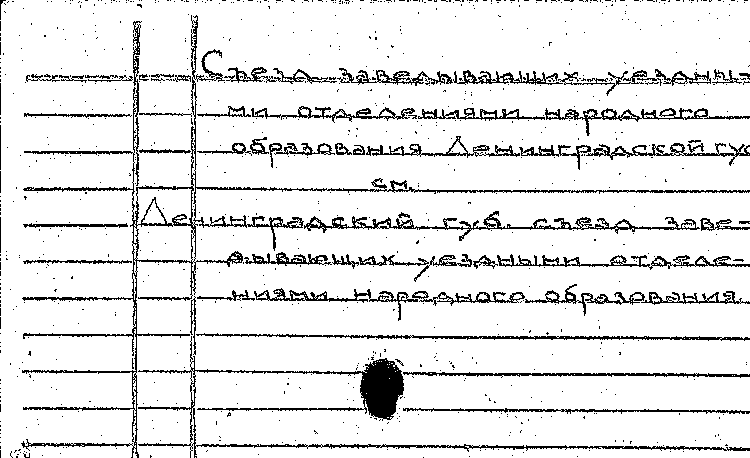 Съезд заведывающих уездны-
ми отделениями народного
образования Ленинградской губ
см.
Ленинградский губ. съезд заве-
дывающих уездными отделе-
ниями Народного образования.